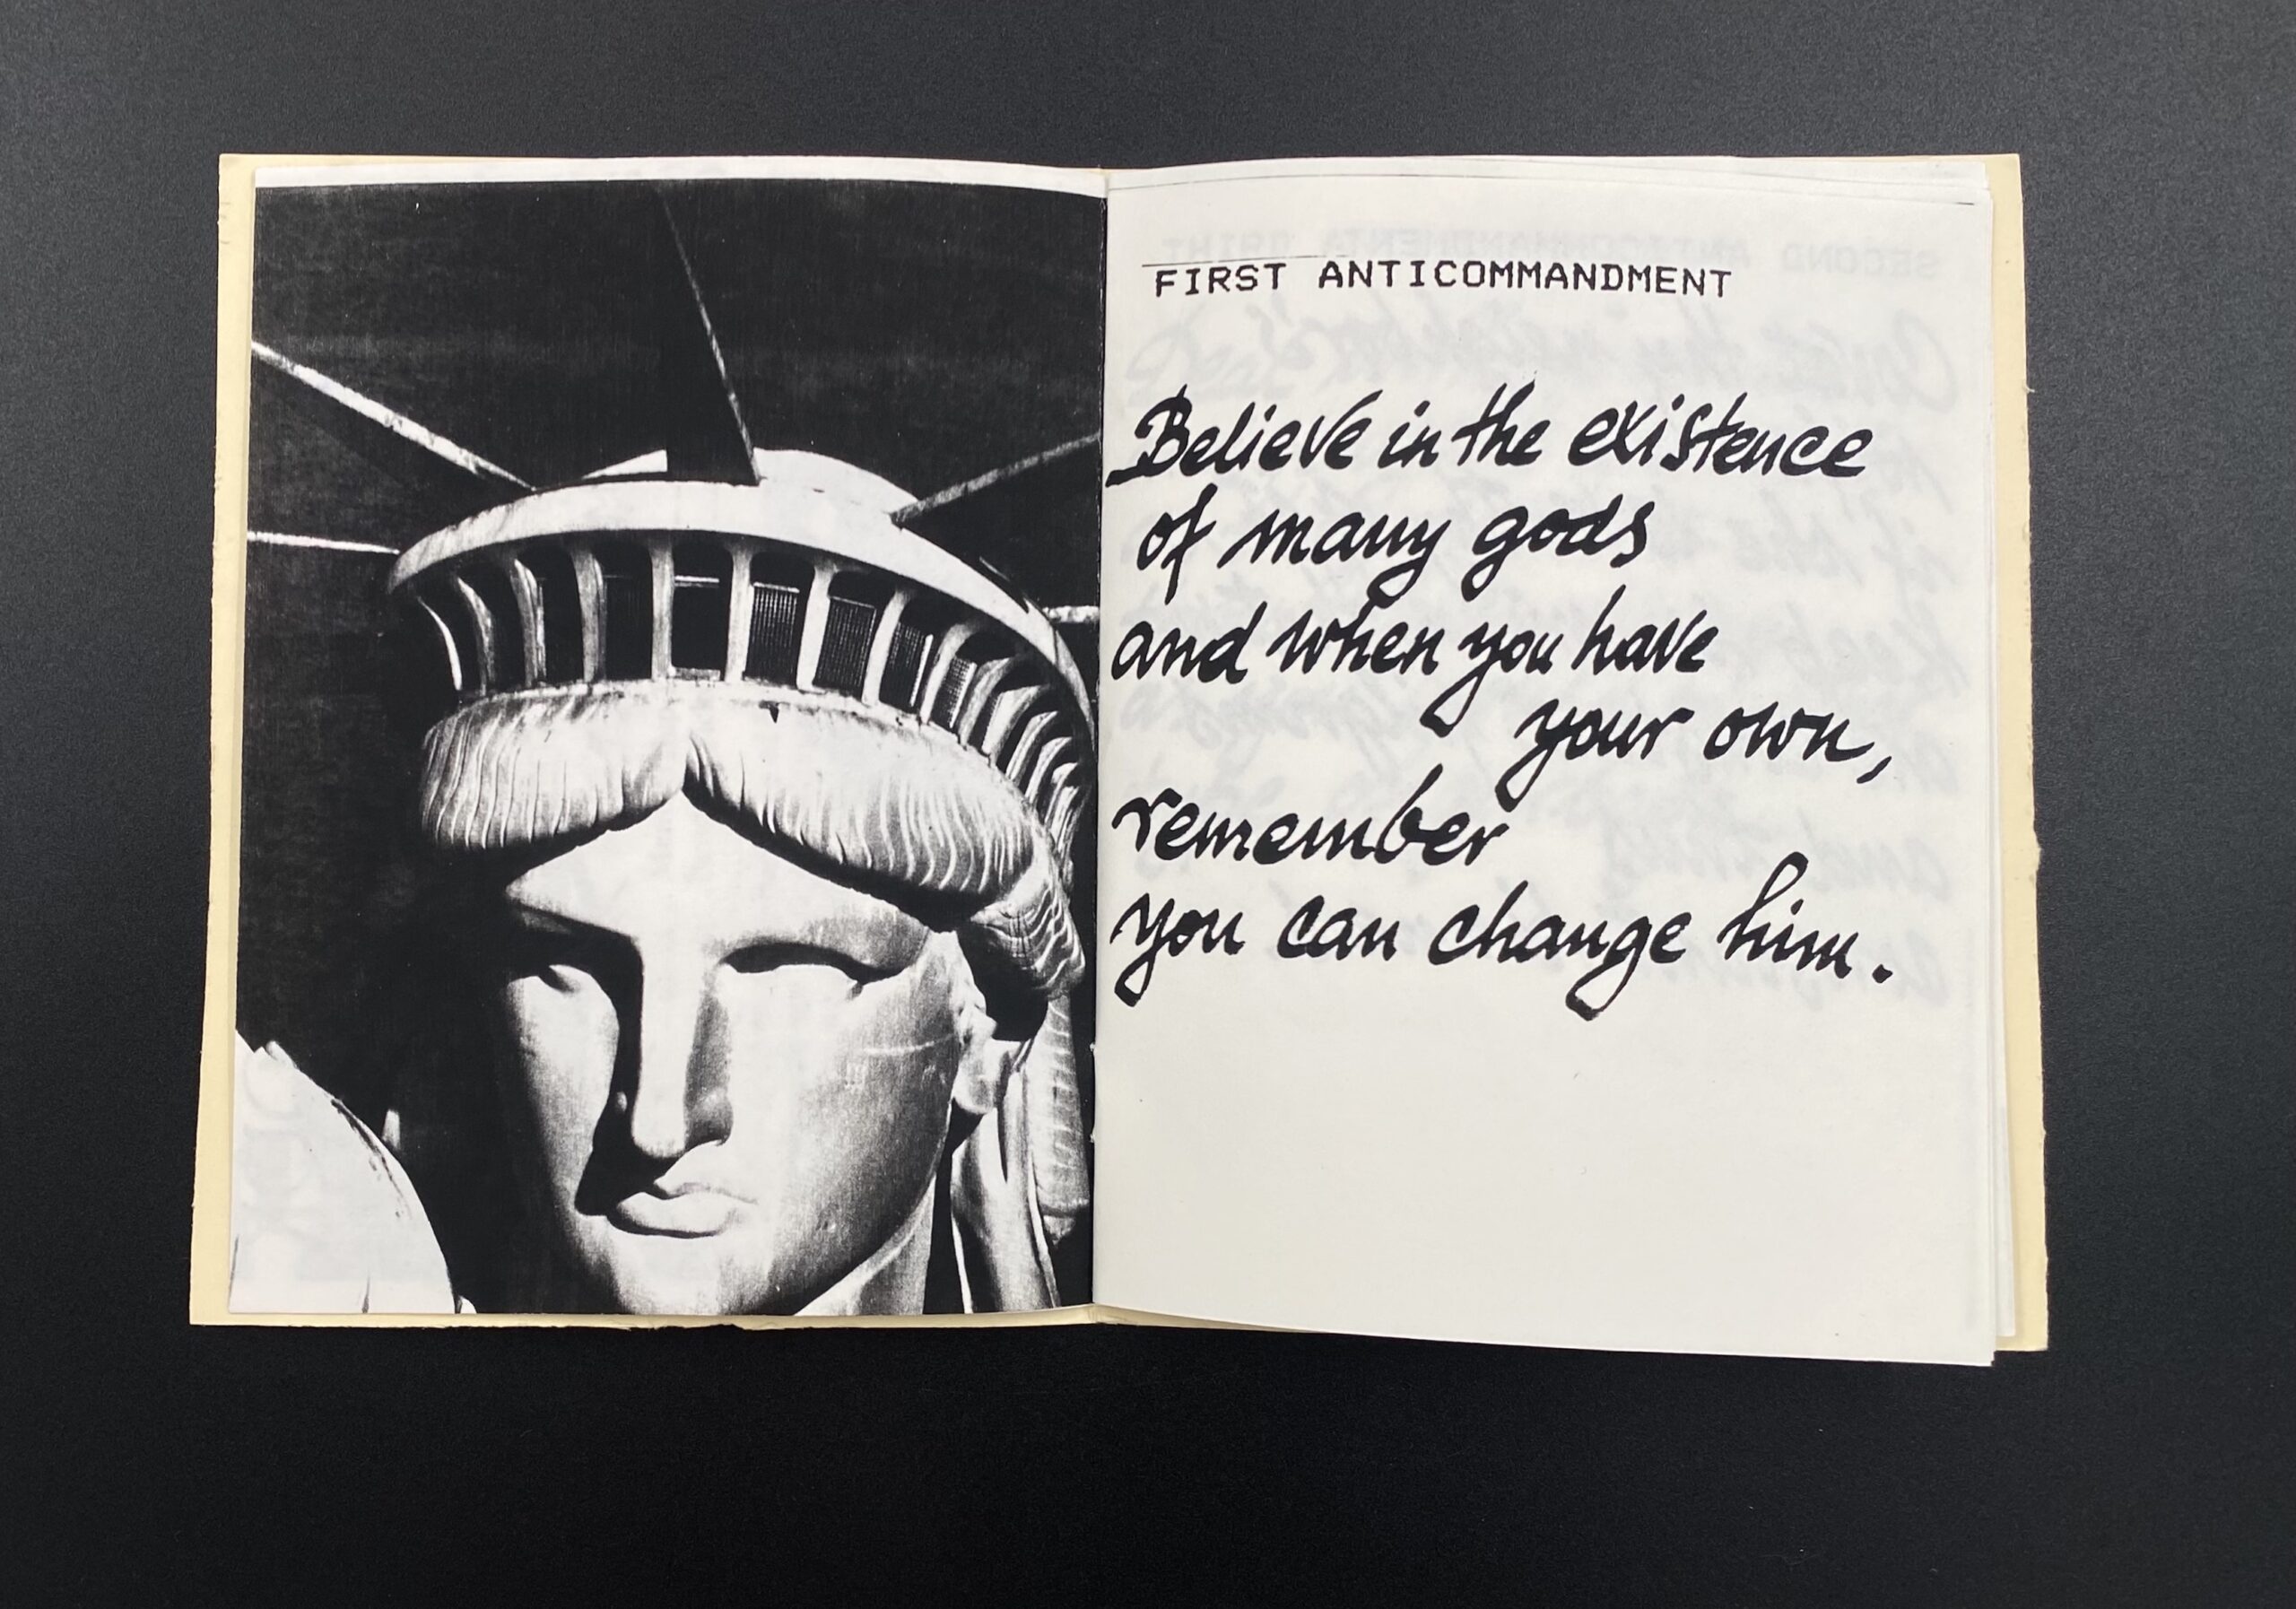 FIRST ANTICOMMANDMENT
Believe in the existence
of many gods
and when you have
your own,
remember
you can change him.